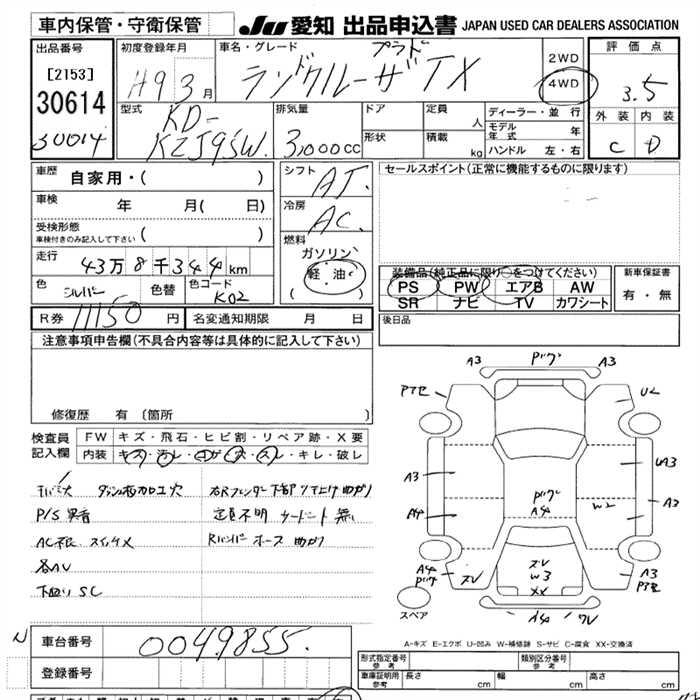 車内保管・守衛保管
JU 愛知 出品申込書 JAPAN USED CAR DEALERS ASSOCIATION
出品番号
[2153]
30614
30614
初度登録年月
H9 3月
車名・グレード
プラド
ランドクルーザ TX
2WD
4WD
評価点
3.5
外装 内装
C D
型式
KD-
KZJ95W.
排気量
3,000cc
ドア
形状
定員 人
積載 kg
ディーラー・並行
モデル年式 年
ハンドル 左・右
車歴
自家用・( )
車検 年 月( 日)
受検形態
車検付きのみ記入して下さい ( )
走行
43万8千344km
色
シルバー
色替
色コード
K02
シフト
AT.
冷房
AC.
燃料
ガソリン
軽油
( )
セールスポイント(正常に機能するものに限ります)
装備品(純正品に限り○をつけてください)
PS PW エアB AW
SR ナビ TV カワシート
新車保証書
有・無
R券 11150円
名変通知期限 月 日
後日品
注意事項申告欄(不具合内容等は具体的に記入して下さい)
修復歴 有(箇所 )
検査員記入欄
FW キズ・飛石・ヒビ割・リペア跡・X要
内装 キズ・汚レ・コゲ・穴・スレ・キレ・破レ
P/S 異音
定員不明 シート 無
AC不良 スイッチX
下廻り SC
A3
A3
U2
A3
UA3
A3
A4
W2
A4
A4
W3
XX
A3
A4
スペア
A-キズ E-エクボ U-凹み W-補修跡 S-サビ C-腐食 XX-交換済
車台番号
0049855.
登録番号
形式指定番号
参考
類別区分番号
参考
車庫証明用
参考
長さ cm
幅 cm
高さ cm